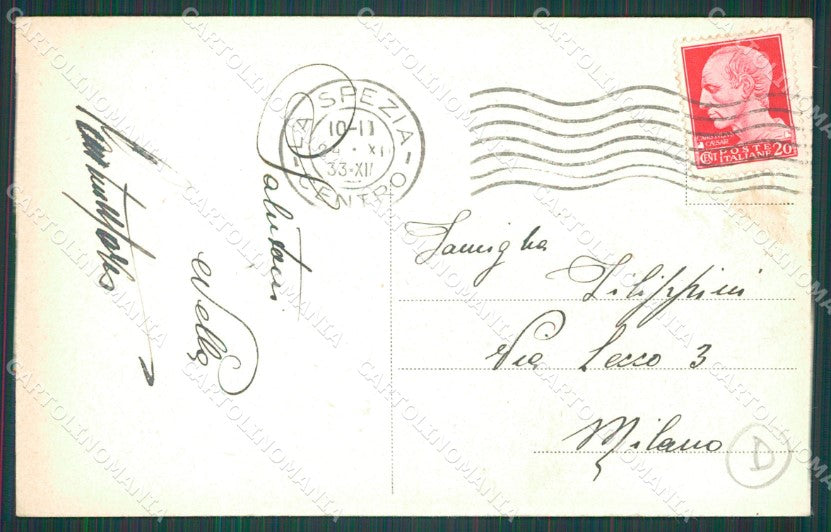 LA SPEZIA
10-11
33-XII
CENTRO
CAESAR
POSTE
CENT ITALIANE 20
Saluti
Nella
Famiglia
Filippini
Via Lecco 3
Milano
D
CARTOLINOMANIA